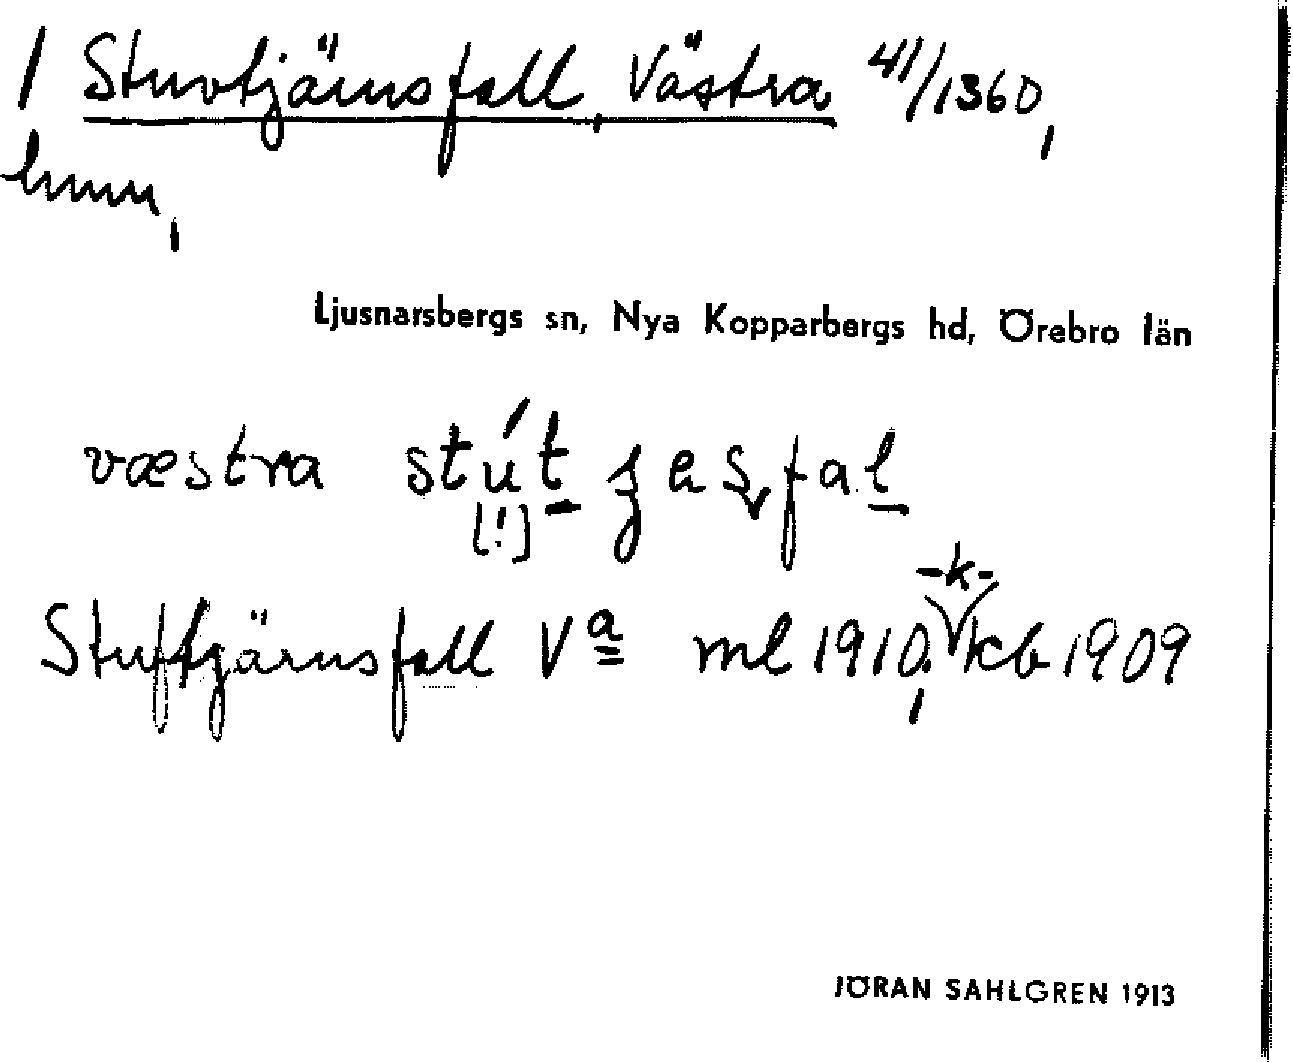 / Stuvtjärnsfall, Västra 41/1360,
hmn,
Ljusnarsbergs sn, Nya Kopparbergs hd, Örebro län
væstra stút
[!]
-k-
Stuftjärnsfall Vª ml 1910, kcb 1909
JÖRAN SAHLGREN 1913